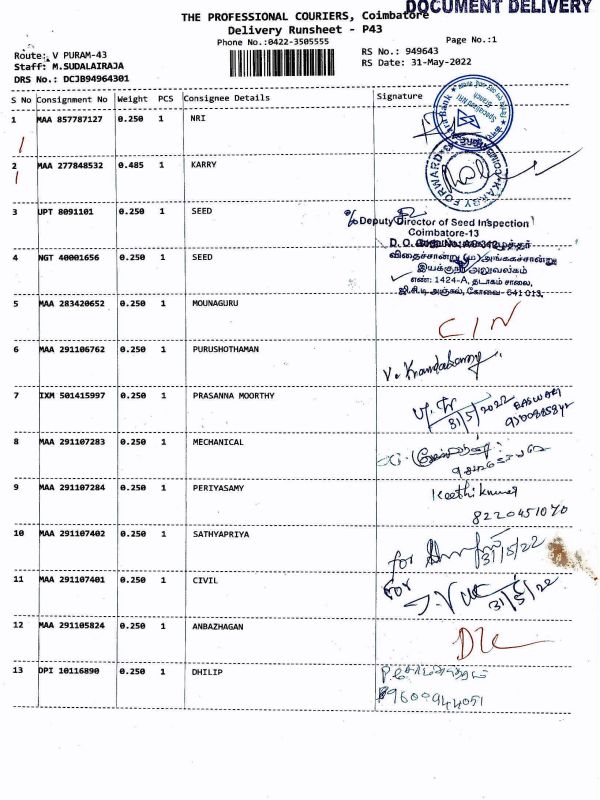 DOCUMENT DELIVERY
THE PROFESSIONAL COURIERS, Coimbatore
Delivery Runsheet - P43
Phone No.:0422-3505555
Page No.:1
Route: V PURAM-43
RS No.: 949643
Staff: M.SUDALAIRAJA
RS Date: 31-May-2022
DRS No.: DCJB94964301
S No Consignment No Weight PCS Consignee Details Signature
1 MAA 857787127 0.250 1 NRI
2 MAA 277848532 0.485 1 KARRY
3 UPT 8091101 0.250 1 SEED
Deputy Director of Seed Inspection
Coimbatore-13
4 NGT 40001656 0.250 1 SEED
விதைச்சான்று (ம) அங்ககச்சான்று
இயக்குநர் அலுவலகம்
எண்: 1424-A, தடாகம் சாலை,
ஜி.சி.டி அஞ்சல், கோவை- 641 013.
5 MAA 283420652 0.250 1 MOUNAGURU
6 MAA 291106762 0.250 1 PURUSHOTHAMAN
V. Kandasamy
7 IXM 501415997 0.250 1 PRASANNA MOORTHY
31/5/2022
8 MAA 291107283 0.250 1 MECHANICAL
9 MAA 291107284 0.250 1 PERIYASAMY
Keethikumar
8220451040
10 MAA 291107402 0.250 1 SATHYAPRIYA
for 31/5/22
11 MAA 291107401 0.250 1 CIVIL
for
31/5/22
12 MAA 291105824 0.250 1 ANBAZHAGAN
13 DPI 10116890 0.250 1 DHILIP
9600944051